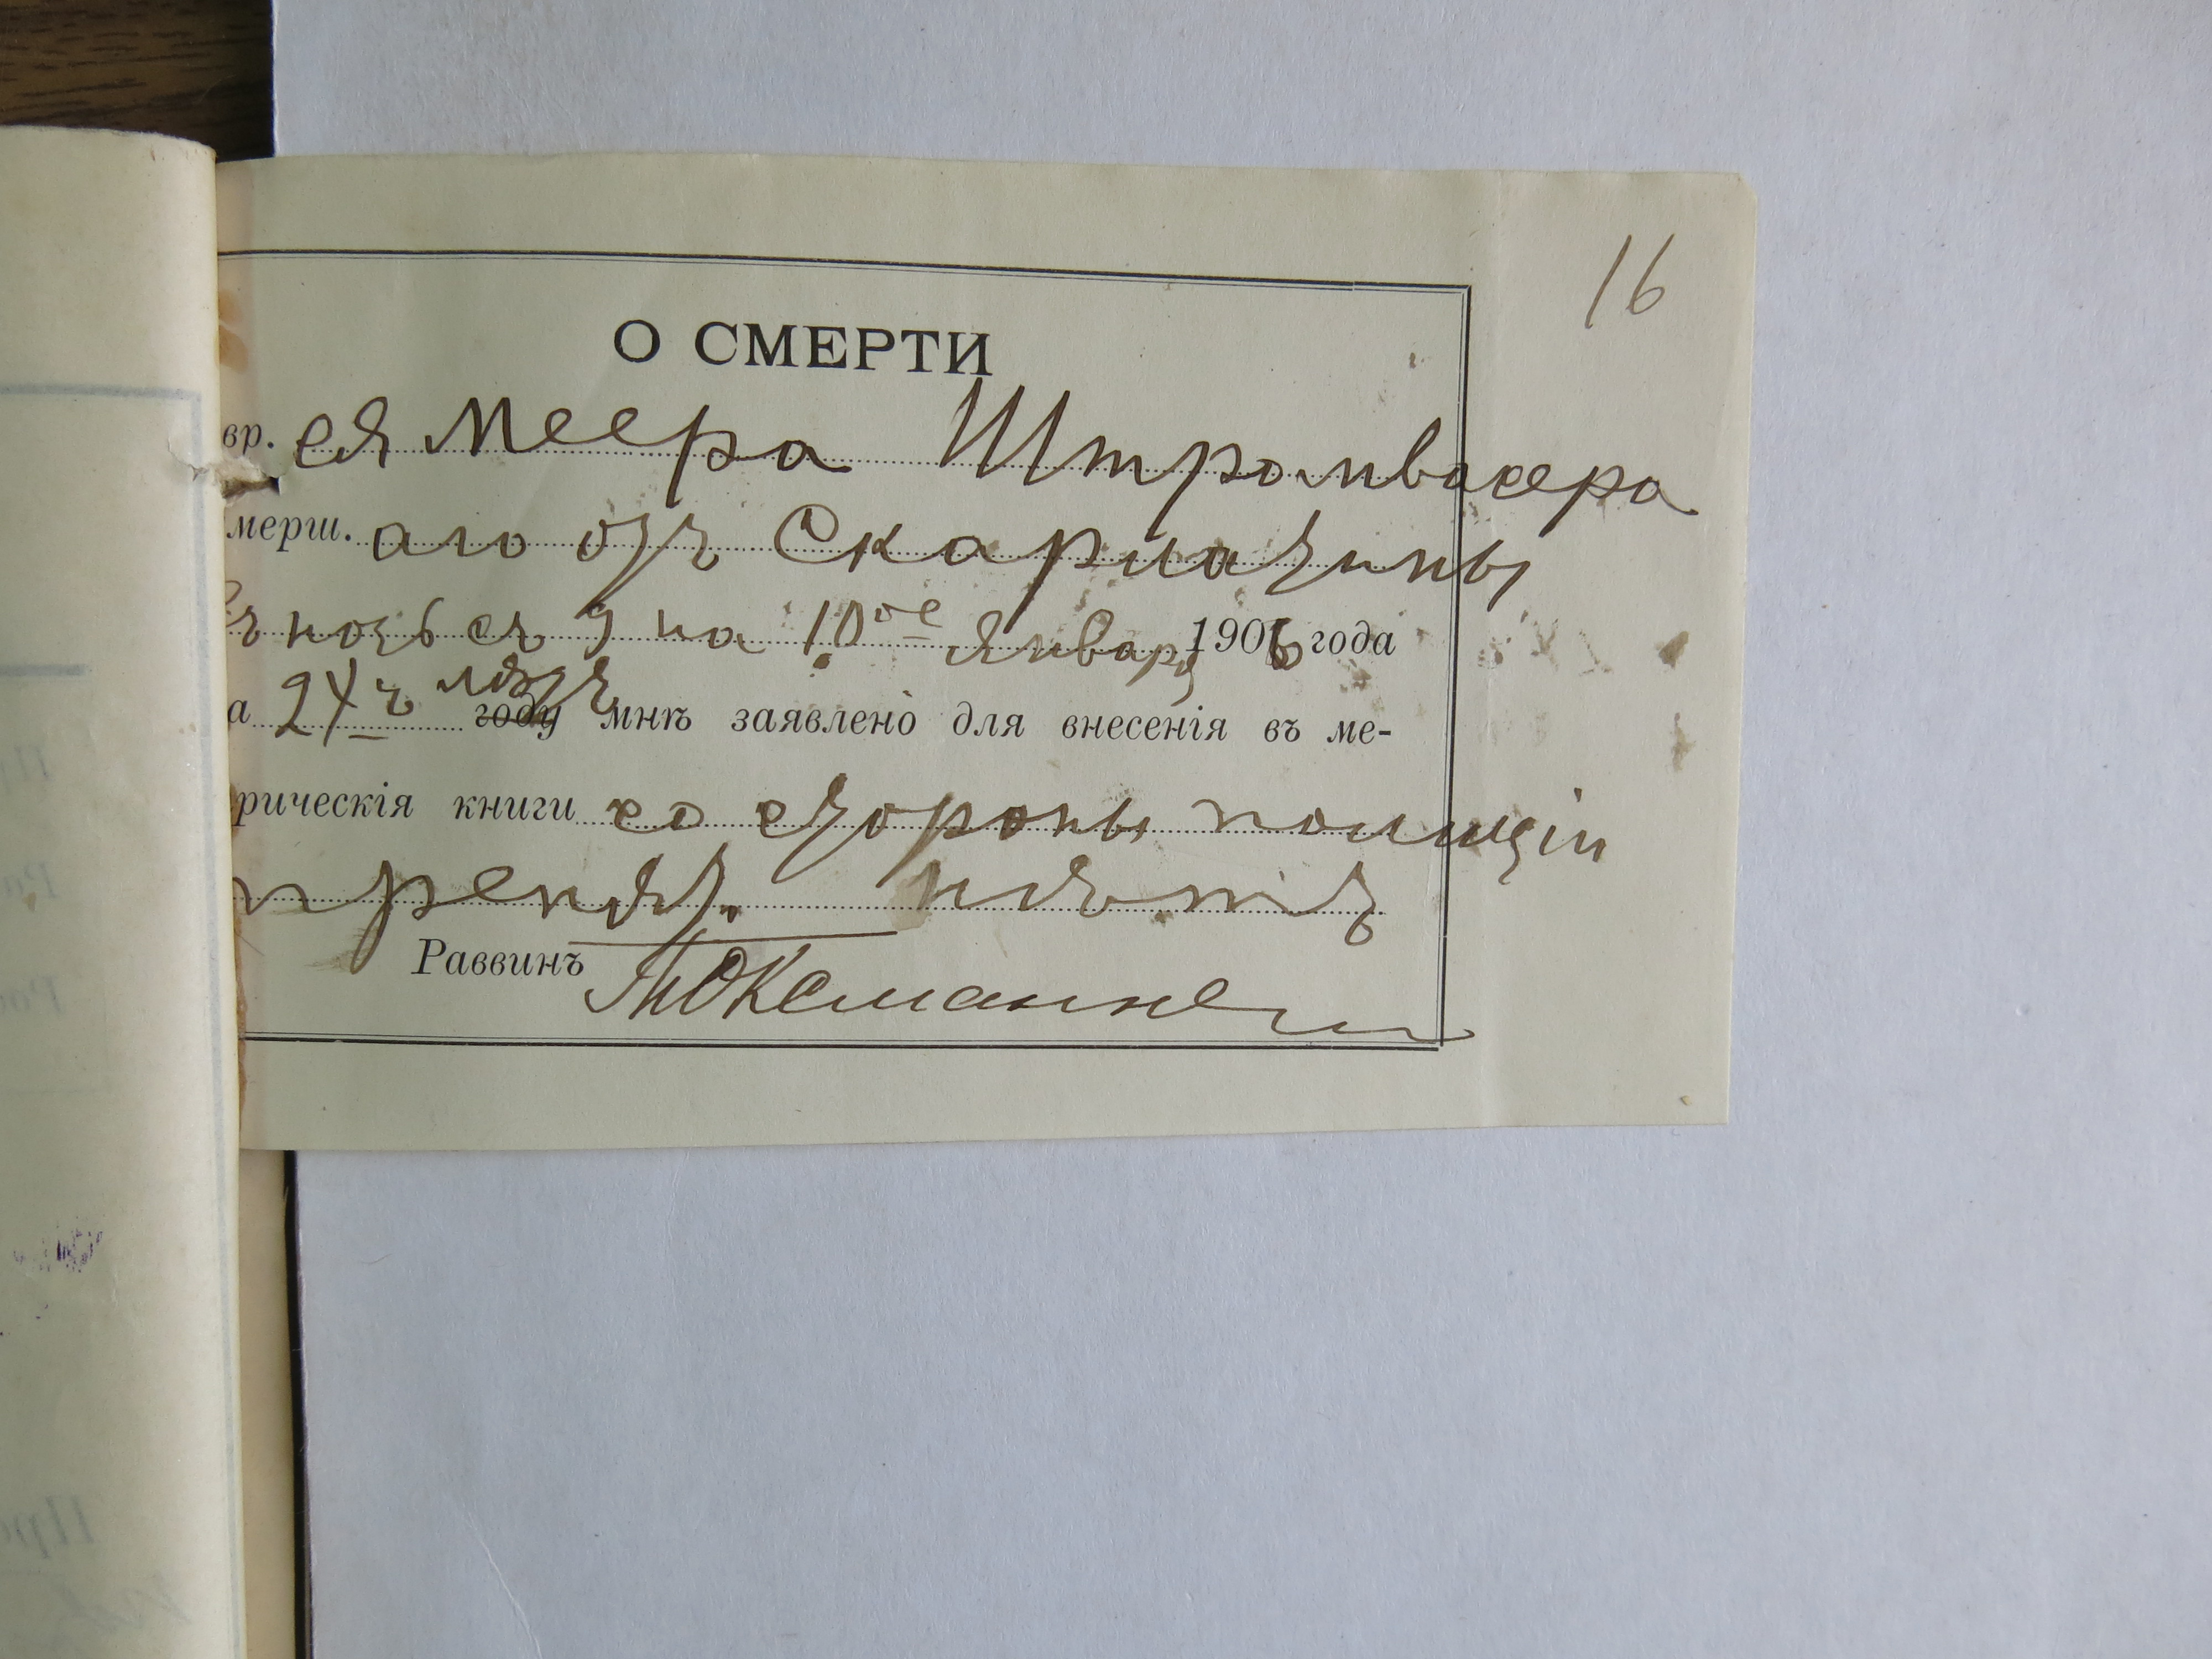 16
О СМЕРТИ
вр. ея Меера Штромвасера
мерш. аго отъ Скарлатины
ъ ночь съ 9 на 10ое Января 1906 года
а 2½ лѣтъ году мнѣ заявлено для внесенія въ ме-
рическія книги со стороны полиціи
препят. нѣтъ
Раввинъ